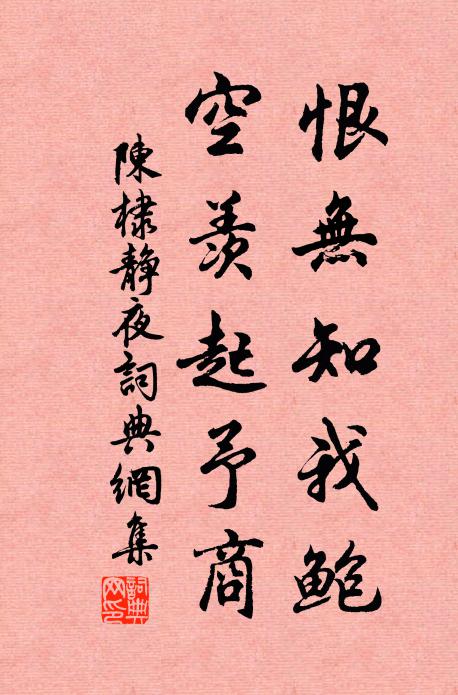 恨無知我鮑
空羨起予商
陳棣靜夜詞典網集
詞典
网印